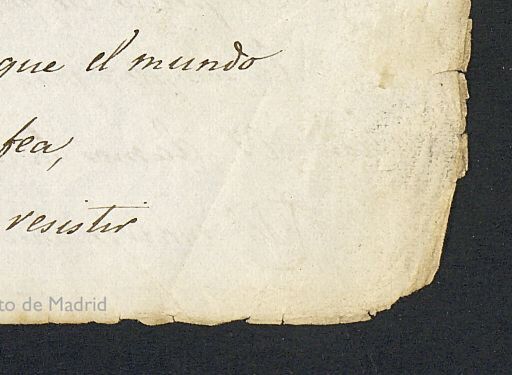 que el mundo
fea,
resistir
to de Madrid